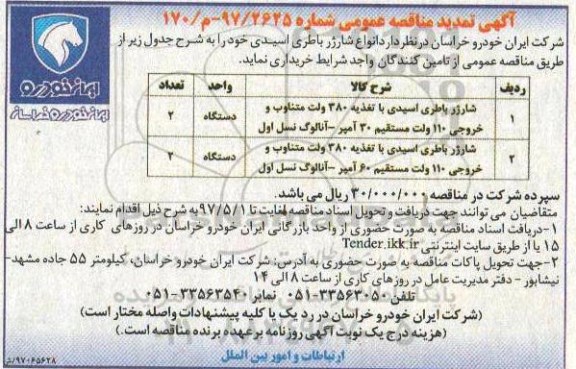 آگهی تمدید مناقصه عمومی شماره ۹۷/۲۶۲۵-م/۱۷۰
شرکت ایران خودرو خراسان در نظر دارد انواع شارژر باطری اسیدی خود را به شرح جدول زیر از
طریق مناقصه عمومی از تامین کنندگان واجد شرایط خریداری نماید.
ایران خودرو
ایران خودرو خراسان
ردیف شرح کالا واحد تعداد
۱ شارژر باطری اسیدی با تغذیه ۳۸۰ ولت متناوب و دستگاه ۲
خروجی ۱۱۰ ولت مستقیم ۳۰ آمپر -آنالوگ نسل اول
۲ شارژر باطری اسیدی با تغذیه ۳۸۰ ولت متناوب و دستگاه ۲
خروجی ۱۱۰ ولت مستقیم ۶۰ آمپر -آنالوگ نسل اول
سپرده شرکت در مناقصه ۳۰/۰۰۰/۰۰۰ ریال می باشد.
متقاضیان می توانند جهت دریافت و تحویل اسناد مناقصه لغایت تا ۹۷/۵/۱ به شرح ذیل اقدام نمایند:
۱-دریافت اسناد مناقصه به صورت حضوری از واحد بازرگانی ایران خودرو خراسان در روزهای کاری از ساعت ۸ الی
۱۵ یا از طریق سایت اینترنتی Tender.ikk.ir
۲-جهت تحویل پاکات مناقصه به صورت حضوری به آدرس: شرکت ایران خودرو خراسان، کیلومتر ۵۵ جاده مشهد-
نیشابور - دفتر مدیریت عامل در روزهای کاری از ساعت ۸ الی ۱۴
تلفن ۳۳۵۶۳۰۵-۰۵۱ نمابر ۳۳۵۶۳۵۴-۰۵۱
(شرکت ایران خودرو خراسان در رد یک یا کلیه پیشنهادات واصله مختار است)
(هزینه درج یک نوبت آگهی روزنامه بر عهده برنده مناقصه است.)
ارتباطات و امور بین الملل
۹۷۰۶۵۶۲۸/د